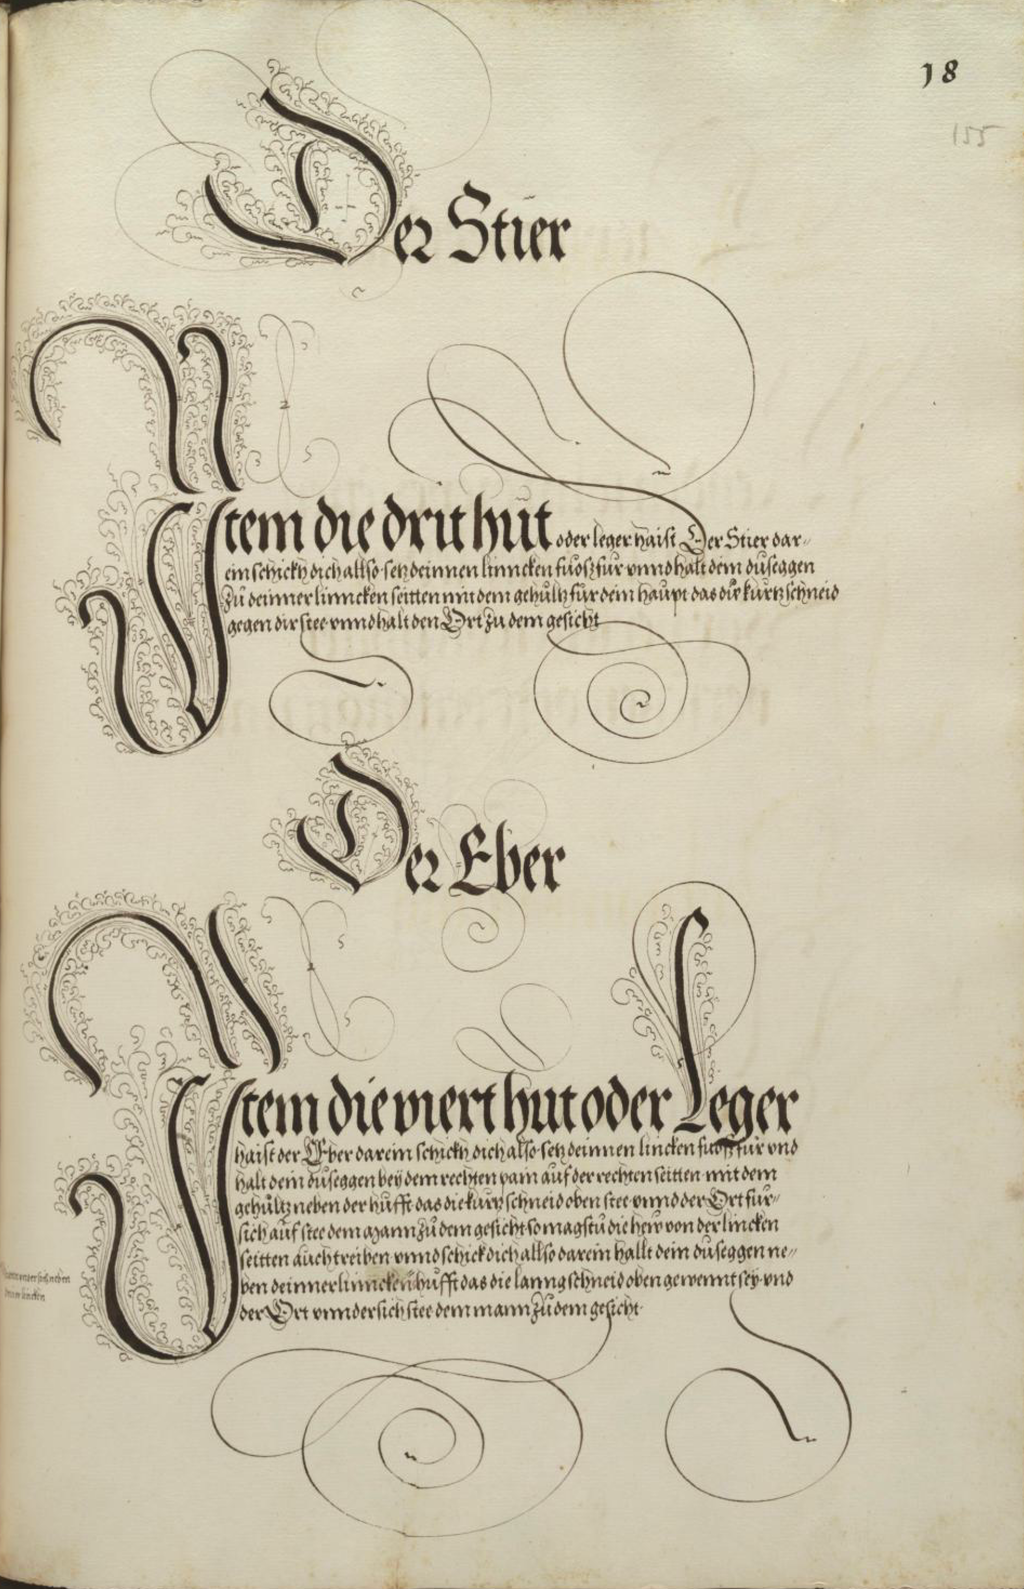 18
155
Der Stier
Item die drit hut oder leger haist Der Stier dar-
ein schickh dich allso setz deinnen linncken fuosz für vnnd halt dein duseggen
zu deinner linncken seitten mit dem gehultz für dein haupt das die kurtz schneid
gegen dir stee vnnd halt den Ort zu dem gesicht
Der Eber
Item die viert hut oder Leger
haist der Eber darein schickh dich also setz deinnen lincken fuosz für vnd
halt dein duseggen bey dem rechten pain auf der rechten seitten mit dem
gehültz neben der hufft das die kurtz schneid oben stee vnnd der Ort für-
sich auf stee dem mann zu dem gesicht so magstu die hew von der lincken
seitten auch treiben vnnd schick dich allso darein hallt dein duseggen ne-
ben deinner linncken hufft das die lanng schneid oben gewennt sey vnd
der Ort vnndersich stee dem mann zu dem gesicht